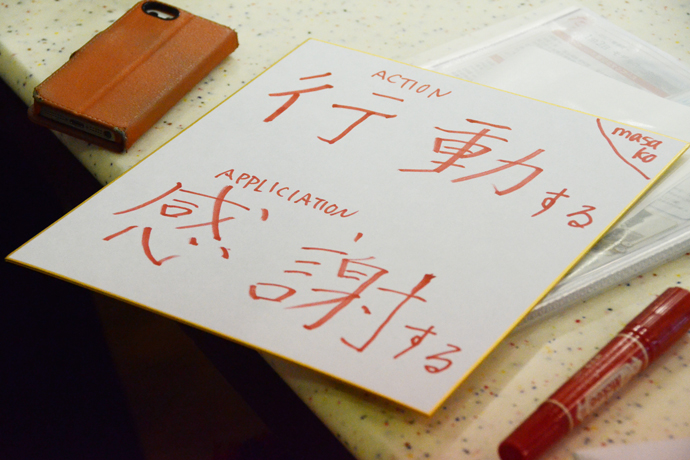 ACTION
行動する
masa
ko
APPLICIATION
感謝する